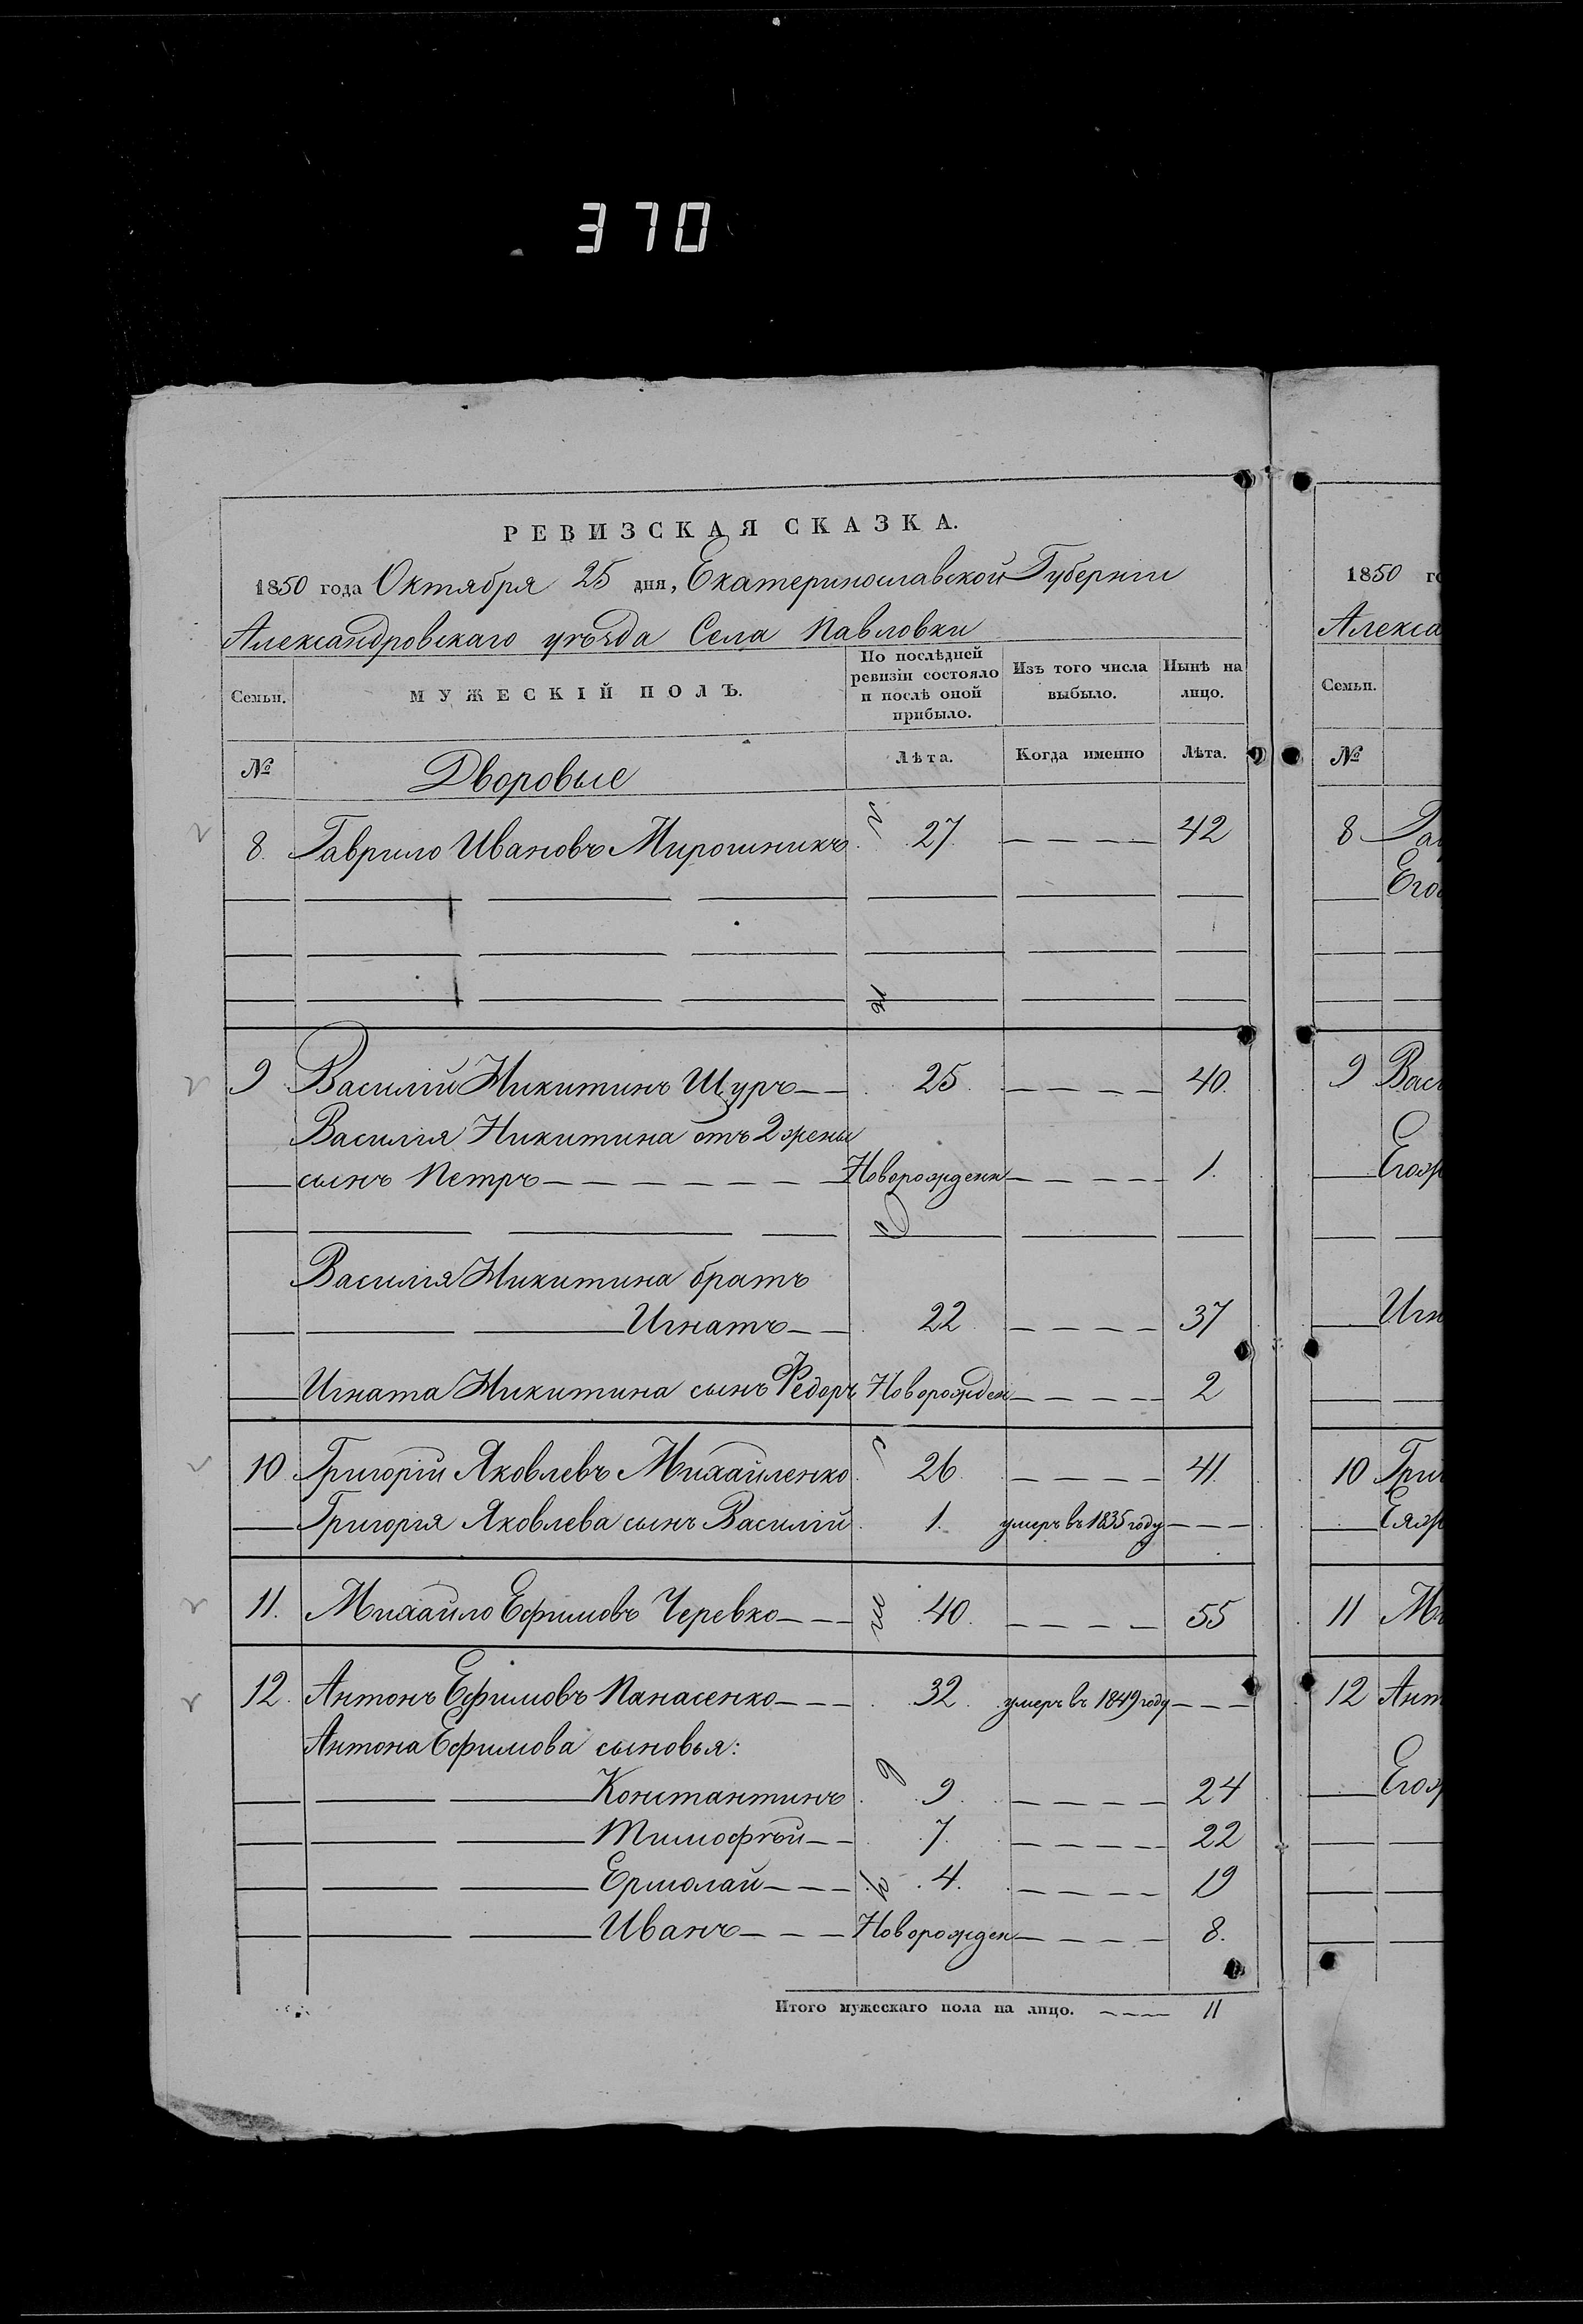 370
РЕВИЗСКАЯ СКАЗКА.
1850 года Октября 25 дня, Екатеринославской Губерніи
Александровскаго уѣзда Села Павловки
Семьи. МУЖЕСКІЙ ПОЛЪ. По послѣдней ревизіи состояло и послѣ оной прибыло. Изъ того числа выбыло. Нынѣ на лицо.
№ Дворовые Лѣта. Когда именно Лѣта.
8. Гаврило Ивановъ Мирошникъ 27. 42
9 Василій Никитинъ Щуръ 25. 40.
Василія Никитина отъ 2 жены
сынъ Петръ Новорожденн 1.
Василія Никитина братъ
Игнатъ 22 37
Игната Никитина сынъ Федоръ Новорожден 2
10. Григорій Яковлевъ Михайленко 26 41.
Григорія Яковлева сынъ Василій 1. умеръ въ 1835 году
11. Михайло Ефимовъ Черевко 40. 55
12. Антонъ Ефимовъ Панасенко 32. умеръ въ 1849 году
Антона Ефимова сыновья:
Константинъ 9. 24
Тимофѣй 7. 22
Ермолай 4. 19
Иванъ Новорожден 8.
Итого мужескаго пола на лицо. 11
1850 го
Алекса
Семьи.
№
8 Га
Его
9 Вас
Егож
Игн
10 Гри
Еяж
11 Ми
12 Ант
Егож